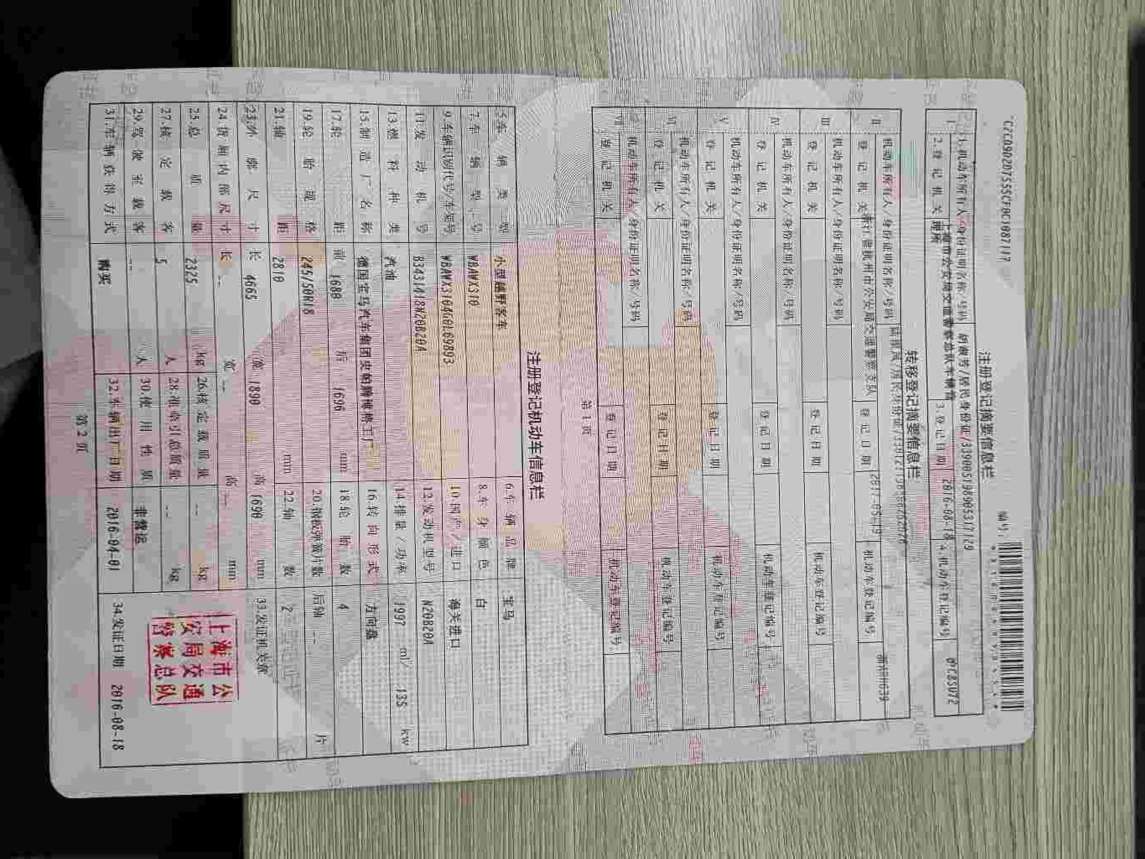 注册登记摘要信息栏
编号:
1.机动车所有人/身份证明名称/号码
2.登记机关 上海市公安局交通警察总队车辆管理所 3.登记日期 2016-08-18 4.机动车登记编号
转移登记摘要信息栏
II 机动车所有人/身份证明名称/号码
登记机关 浙江省杭州市公安局交通警察支队 登记日期 机动车登记编号
III 机动车所有人/身份证明名称/号码
登记机关 登记日期 机动车登记编号
IV 机动车所有人/身份证明名称/号码
登记机关 登记日期 机动车登记编号
V 机动车所有人/身份证明名称/号码
登记机关 登记日期 机动车登记编号
VI 机动车所有人/身份证明名称/号码
登记机关 登记日期 机动车登记编号
VII 机动车所有人/身份证明名称/号码
登记机关 登记日期 机动车登记编号
第 1 页
注册登记机动车信息栏
5.车辆类型 小型越野客车 6.车辆品牌 宝马
7.车辆型号 WBAWX310 8.车身颜色 白
9.车辆识别代号/车架号 WBAWX3104G0L69893 10.国产/进口 海关进口
11.发动机号 B3431418N20B20A 12.发动机型号 N20B20A
13.燃料种类 汽油 14.排量/功率 1997 ml/ 135 kw
15.制造厂名称 德国宝马汽车集团史帕腾博格工厂 16.转向形式 方向盘
17.轮距 前 1600 后 1696 mm 18.轮胎数 4
19.轮胎规格 245/50R18 20.钢板弹簧片数 后轴 -- 片
21.轴距 2810 mm 22.轴数 2
23.外廓尺寸 长 4665 宽 1890 高 1690 mm 33.发证机关章
24.货厢内部尺寸 长 -- 宽 -- 高 -- mm
25.总质量 2325 kg 26.核定载质量 -- kg
27.核定载客 5 人 28.准牵引总质量 -- kg
29.驾驶室载客 -- 人 30.使用性质 非营运
31.车辆获得方式 购买 32.车辆出厂日期 2016-04-01 34.发证日期 2016-08-18
上海市公
安局交通
警察总队
第 2 页